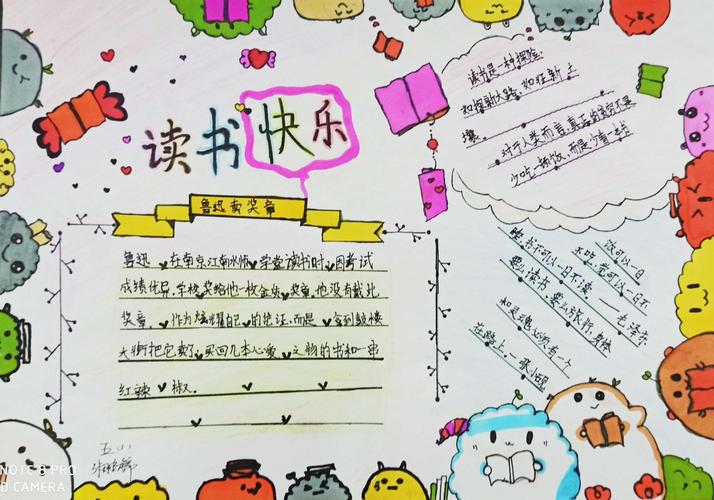 读书快乐
读书是一种探险.
如探新大路,如征新土
壤
对于人类而言,真正的贫穷不是
少吃一顿饭,而是少看一本书
鲁迅卖奖章
鲁迅 在南京江南水师学堂读书时,因考试
成绩优异,学校奖给他一枚金质奖章,他没有戴此
奖章,作为炫耀自己的凭证,而是拿到鼓楼
大街把它卖了,买回几本心爱之物的书和一串
红辣椒.
饭可以一日
不吃,觉可以一日不
睡,书不可以一日不读——毛泽东
要么读书,要么旅行,身体
和灵魂必须有一个
在路上.—张小砚
NOTE 8 PRO
D CAMERA